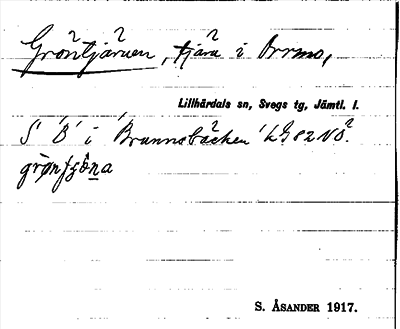 Gröntjärnen, tjärn i Orrmo,
Lillhärdals sn, Svegs tg, Jämtl. l.
S 'B' i 'Brunnsbäcken' LG 82 NO.
S. ÅSANDER 1917.